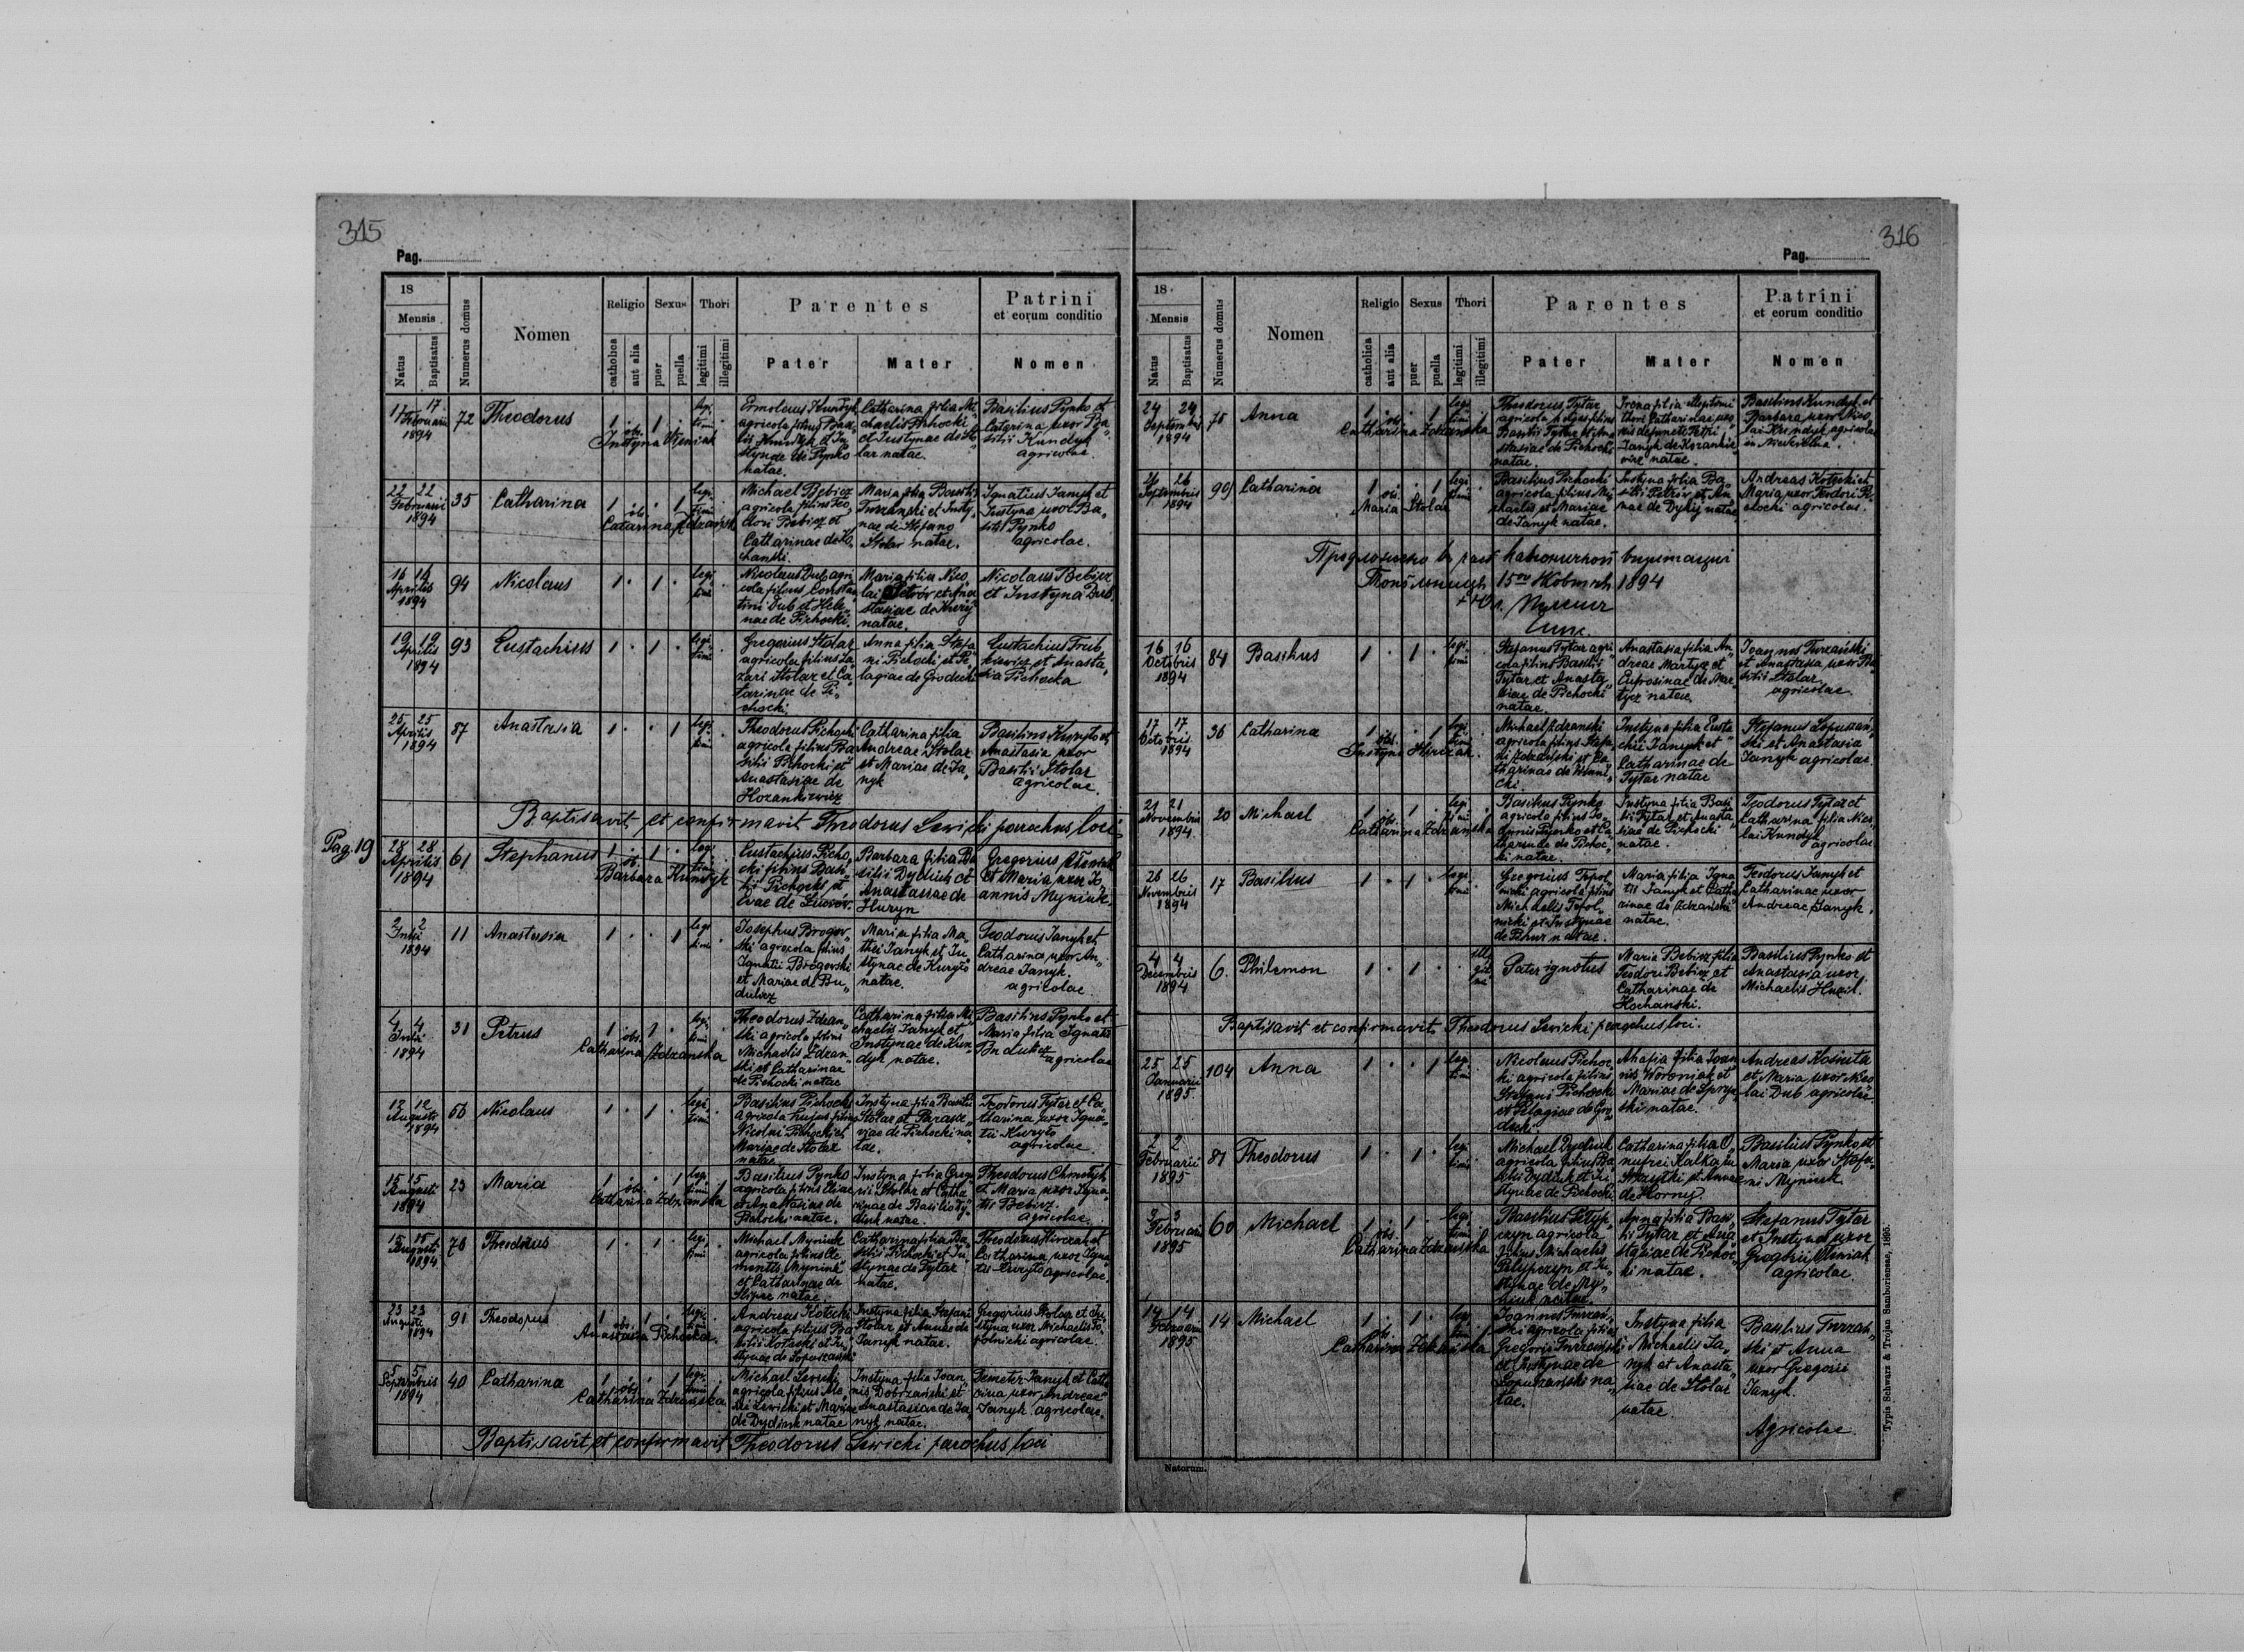 315
Pag.
18
Mensis
Natus
Baptisatus
Numerus domus
Nomen
Religio
catholica
aut alia
Sexus
puer
puella
Thori
legitimi
illegitimi
Parentes
Pater
Mater
Patrini
et eorum conditio
Nomen
17 17
Februarii
1894
72
Theodorus
1 . 1 .
legi
timi
obs.
Justyna
agricola filius Basi
natae.
Catharina filia Mi
chaelis Pichocki
et Justynae de Sto
lar natae.
Basilius Pynko et
Catarina uxor Ba
silii Kundyk
agricolae.
22 22
Februarii
1894
35
Catharina
1 . . 1
legi
timi
obs.
Michael Bebicz
agricola filius Teo
dori Bebicz et
Catharinae de Ko
chanski.
Maria filia Basilii
Turzanski et Justy
nae de Stefano
Stolar natae.
Ignatius Janyk et
Justyna uxor Ba
silii Pynko
agricolae.
16 16
Aprilis
1894
94
Nicolaus
1 . 1 .
legi
timi
Nicolaus Dub agri
cola filius Constan
tini Dub et Hele
nae de Pichocki.
Maria filia Nico
lai
natae.
Nicolaus Bebicz
et Justyna Dub.
19 19
Aprilis
1894
93
Eustachius
1 . 1 .
legi
timi
Gregorius Stolar
agricola filius La
zari Stolar et Ca
tarinae de Pi
chocki.
Anna filia Stefa
ni Pichocki et Pe
lagiae de Grodecki
Eustachius
et Anasta
sia Pichocka
25 25
Aprilis
1894
87
Anastasia
1 . . 1
legi
timi
Theodorus Pichocki
agricola filius Ba
silii Pichocki et
Anastasiae de
Hozankiewicz
Catharina filia
Andreae Stolar
et Mariae de Ja
nyk
Basilius Kuryło et
Anastasia uxor
Basilii Stolar
agricolae.
Baptisavit et confirmavit Theodorus Lewicki parochus loci
Pag. 19
28 28
Aprilis
1894
61
Stephanus
1 . 1 .
legi
timi
ob.
Barbara Kundyk
Eustachius Picho
cki filius Basi
lii Pichocki et
Evae de
Barbara filia Ba
silii Dydiuk et
Anastasiae de
Huryn
Gregorius
et Maria uxor Jo
annis Myniuk.
2 2
Julii
1894
11
Anastasia
1 . . 1
legi
timi
Josephus Brogow
ski agricola filius
Ignatii Brogowski
et Mariae de Bu
dukiez
Maria filia Ma
thei Janyk et Ju
stynae de Kuryło
natae.
Teodorus Janyk et
Catharina uxor An
dreae Janyk.
agricolae.
4 4
Julii
1894
31
Petrus
1 . 1 .
legi
timi
obs.
Catharina Zdzanska
Theodorus Zdzan
ski agricola filius
Michaelis Zdzan
ski et Catharinae
de Pichocki natae
Catharina filia Mi
chaelis Janyk et
Justynae de Kun
dyk natae.
Basilius Pynko et
Maria filia Ignatii
agricolae
12 12
Augusti
1894
Nicolaus
1 . 1 .
legi
timi
Basilius Pichocki
agricola hujus filius
Nicolai Pichocki et
Mariae de Stolar
natae
Justyna filia Basilii
Stolar et Parasce
viae de Pichocki na
tae.
Teodorus Tytar et Ca
tharina uxor Igna
tii Kuryło
agricolae.
15 15
Augusti
1894
23
Maria
1 . . 1
legi
timi
obs.
Catharina Zdzanska
Basilius Pynko
agricola filius Eliae
et Anastasiae de
Pichocki natae.
Justyna filia Grego
rii Stolar et Catha
rinae de Basilio Dy
diuk natae.
Theodorus
et Maria uxor Igna
tii Bebicz.
agricolae.
15 15
Augusti
1894
Theodorus
1 . 1 .
legi
timi
Michael Myniuk
agricola filius Cle
mentis Myniuk
et Catharinae de
natae.
Catharina filia Ba
silii Pichocki et Ju
stynae de Tytar
natae.
Theodorus Hirczak et
Catharina uxor Igna
tii Kuryło agricolae.
23 23
Augusti
1894
91
Theodorus
1 . 1 .
legi
timi
obs.
Anastasia Pichocka.
Andreas Kotecki
agricola filius Ba
silii Kotecki et Ju
stynae de Lopuszanski
Justyna filia Stefani
Stolar et Annae de
Janyk natae.
Gregorius Stolar et Ju
styna uxor Michaelis To
polnicki agricolae.
5 5
Septembris
1894
40
Catharina
1 . . 1
legi
timi
obs.
Catharina Zdzanska.
Michael Lewicki
agricola filius
Lewicki et Mariae
de Dydiuk natae
Justyna filia Joan
nis Dobrzanski et
Anastasiae de Ja
nyk natae.
Demeter Janyk et Catha
rina uxor Andreae
Janyk agricolae.
Baptisavit et confirmavit Theodorus Lewicki parochus loci
316
Pag.
18
Mensis
Natus
Baptisatus
Numerus domus
Nomen
Religio
catholica
aut alia
Sexus
puer
puella
Thori
legitimi
illegitimi
Parentes
Pater
Mater
Patrini
et eorum conditio
Nomen
24 24
Septembris
1894
75
Anna
1 . . 1
legi
timi
obs.
Catharina Zdzanska
Theodorus Tytar
agricola hujus filius
Basilii Tytar et Ana
stasiae de Pichocki
natae.
Irena filia illegitimi
thori Catharinae uxo
ris defuncti Petri
Janyk de Kozankie
wicz natae.
Basilius Kundyk et
Barbara uxor Nico
lai Kundyk agricolae
in
26 26
Septembris
1894
99
Catharina
1 . . 1
legi
timi
obs.
Maria Stolar
Basilius Pichocki
agricola filius Mi
chaelis et Mariae
de Janyk natae.
Justyna filia Ba
silii Petriv et An
nae de Dykij natae
Andreas Kotecki et
Maria uxor Teodori Pi
chocki agricolae.
1894
16 16
Octobris
1894
84
Basilius
1 . 1 .
legi
timi
Stefanus Tytar agri
cola filius Basilii
Tytar et Anasta
siae de Pichocki
natae.
Anastasia filia An
dreae Martycz et
Eufrosinae de Mar
tycz natae.
Joannes Turzański
et Anastasia uxor Ba
silii Stolar
agricolae.
17 17
Octobris
1894
36
Catharina
1 . . 1
legi
timi
obs.
Justyna Hirczak.
Michael Zdzanski
agricola filius Stefa
ni Zdzański et Ca
tharinae de
Justyna filia Eusta
chii Janyk et
Catharinae de
Tytar natae
Stefanus Lopuszań
ski et Anastasia
Janyk agricolae.
21 21
Novembris
1894.
20
Michael
1 . 1 .
legi
timi
obs.
Catharina Zdzanska
Basilius Pynko
agricola filius Jo
annis Pynko et Ca
tharinae de Pichoc
ki natae.
Justyna filia Basi
lii Tytar et Anasta
siae de Pichocki
natae.
Teodorus Tytar et
Catharina filia Nico
lai Kundyk
agricolae
26 26
Novembris
1894
17
Basilius
1 . 1 .
legi
timi
Gregorius Topol
nicki agricola filius
Michaelis Topol
nicki et Justynae
natae.
Maria filia Igna
tii Janyk et Catha
rinae de Zdzanski
natae.
Teodorus Janyk et
Catharinae uxor
Andreae Janyk.
4 4
Decembris
1894
6.
Philemon
1 . 1 . .
ille
giti
mi
Pater ignotus
Maria Bebicz filia
Teodori Bebicz et
Catharinae de
Kochanski.
Basilius Pynko et
Anastasia uxor
Michaelis
Baptisavit et confirmavit Theodorus Lewicki parochus loci.
25 25
Januarii
1895
104
Anna
1 . . 1
legi
timi
Nicolaus Pichoc
ki agricola filius
Stefani Pichocki
et Pelagiae de Gro
decki
Ahafia filia Joan
nis Woroniak et
Mariae de
natae.
Andreas Kosiuta
et Maria uxor Nico
lai Dub agricolae.
2 2
Februarii
1895
81
Theodorus
1 . 1 .
legi
timi
Michael Dydiuk
agricola filius Ba
silii Dydiuk et Ju
stynae de Pichocki
Catharina filia O
nufrei
et Annae
de Horny.
Basilius Pynko et
Maria uxor Stefa
ni Myniuk
3 3
Februarii
1895
60
Michael
1 . 1 .
legi
timi
obs.
Catharina Zdzańska
Basilius
agricola
filius Michaelis
et Ju
stynae de My
niuk natae.
Anna filia Basi
lii Tytar et Ana
stasiae de Pichoc
ki natae.
Stefanus Tytar
et Justyna uxor
Gregorii
agricolae
14 14
Februarii
1895
14
Michael
1 . 1 .
legi
timi
ob.
Catharina Zdzańska
Joannes Turzań
ski agricola filius
Gregorii Turzański
et Justynae de
Lopuszanski na
tae.
Justyna filia
Michaelis Ja
nyk et Anasta
siae de Stolar
natae.
Basilius Turzań
ski et Anna
uxor Gregorii
Janyk.
Agricolae
Natorum.
Typis Schwarz & Trojan Samboriensae, 1895.